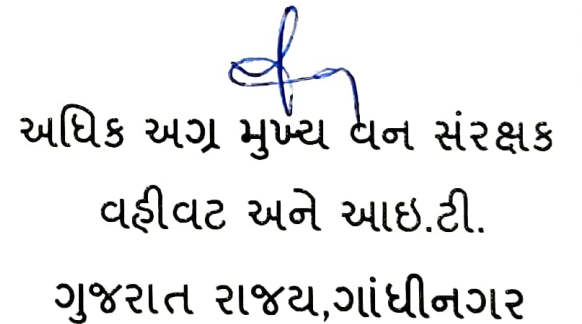 અધિક અગ્ર મુખ્ય વન સંરક્ષક
વહીવટ અને આઇ.ટી.
ગુજરાત રાજય,ગાંધીનગર